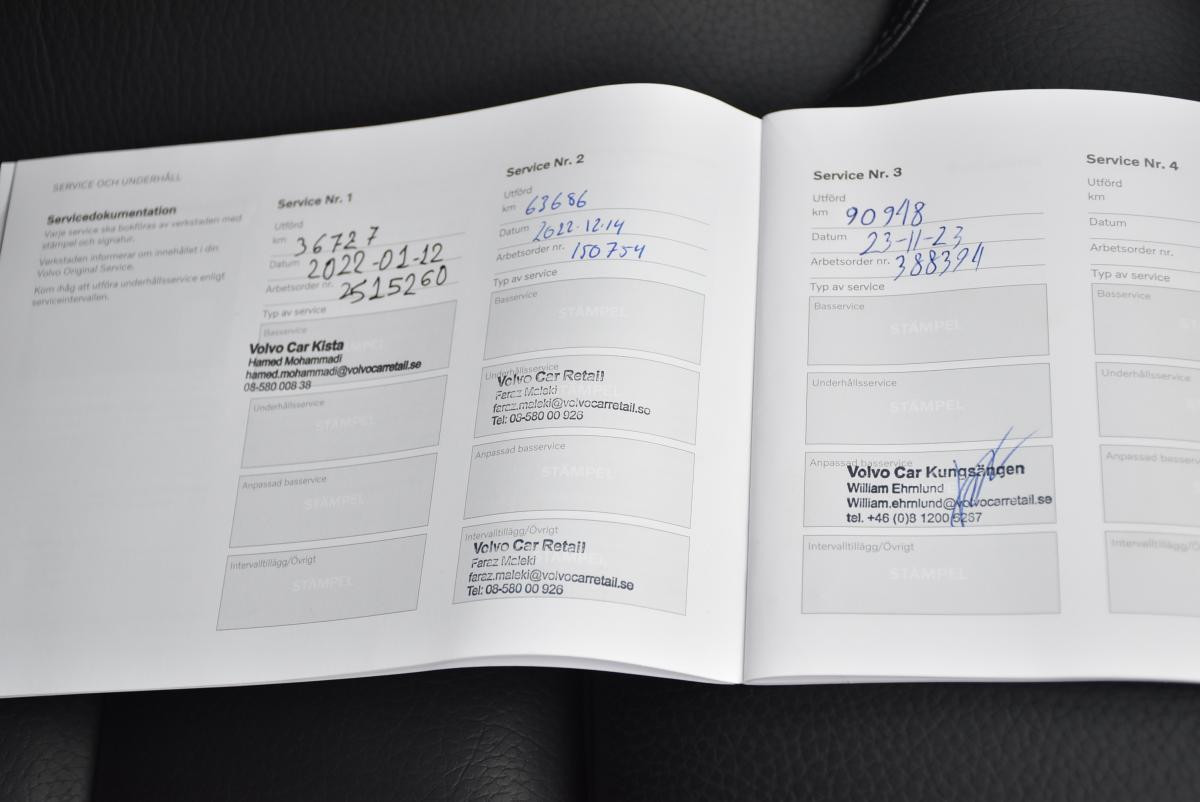 SERVICE OCH UNDERHÅLL
Servicedokumentation
Varje service ska bokföras av verkstaden med
stämpel och signatur.
Verkstaden informerar om innehållet i din
Volvo Original Service.
Kom ihåg att utföra underhållsservice enligt
serviceintervallen.
Service Nr. 1
Utförd
km 36727
Datum 2022-01-12
Arbetsorder nr. 2515260
Typ av service
Basservice
STÄMPEL
Volvo Car Kista
Hamed Mohammadi
hamed.mohammadi@volvocarretail.se
08-580 008 38
Underhållsservice
STÄMPEL
Anpassad basservice
STÄMPEL
Intervalltillägg/Övrigt
STÄMPEL
Service Nr. 2
Utförd
km 63686
Datum 2022-12-14
Arbetsorder nr. 150754
Typ av service
Basservice
STÄMPEL
Underhållsservice
Volvo Car Retail
Faraz Maleki
faraz.maleki@volvocarretail.se
Tel: 08-580 00 926
Anpassad basservice
STÄMPEL
Intervalltillägg/Övrigt
Volvo Car Retail
Faraz Maleki
faraz.maleki@volvocarretail.se
Tel: 08-580 00 926
Service Nr. 3
Utförd
km 90948
Datum 23-11-23
Arbetsorder nr. 388394
Typ av service
Basservice
STÄMPEL
Underhållsservice
STÄMPEL
Anpassad basservice
Volvo Car Kungsängen
William Ehrnlund
William.ehrnlund@volvocarretail.se
tel. +46 (0)8 1200 5267
Intervalltillägg/Övrigt
STÄMPEL
Service Nr. 4
Utförd
km
Datum
Arbetsorder nr.
Typ av service
Basservice
Underhållsservice
Anpassad basservice
Intervalltillägg/Övrigt